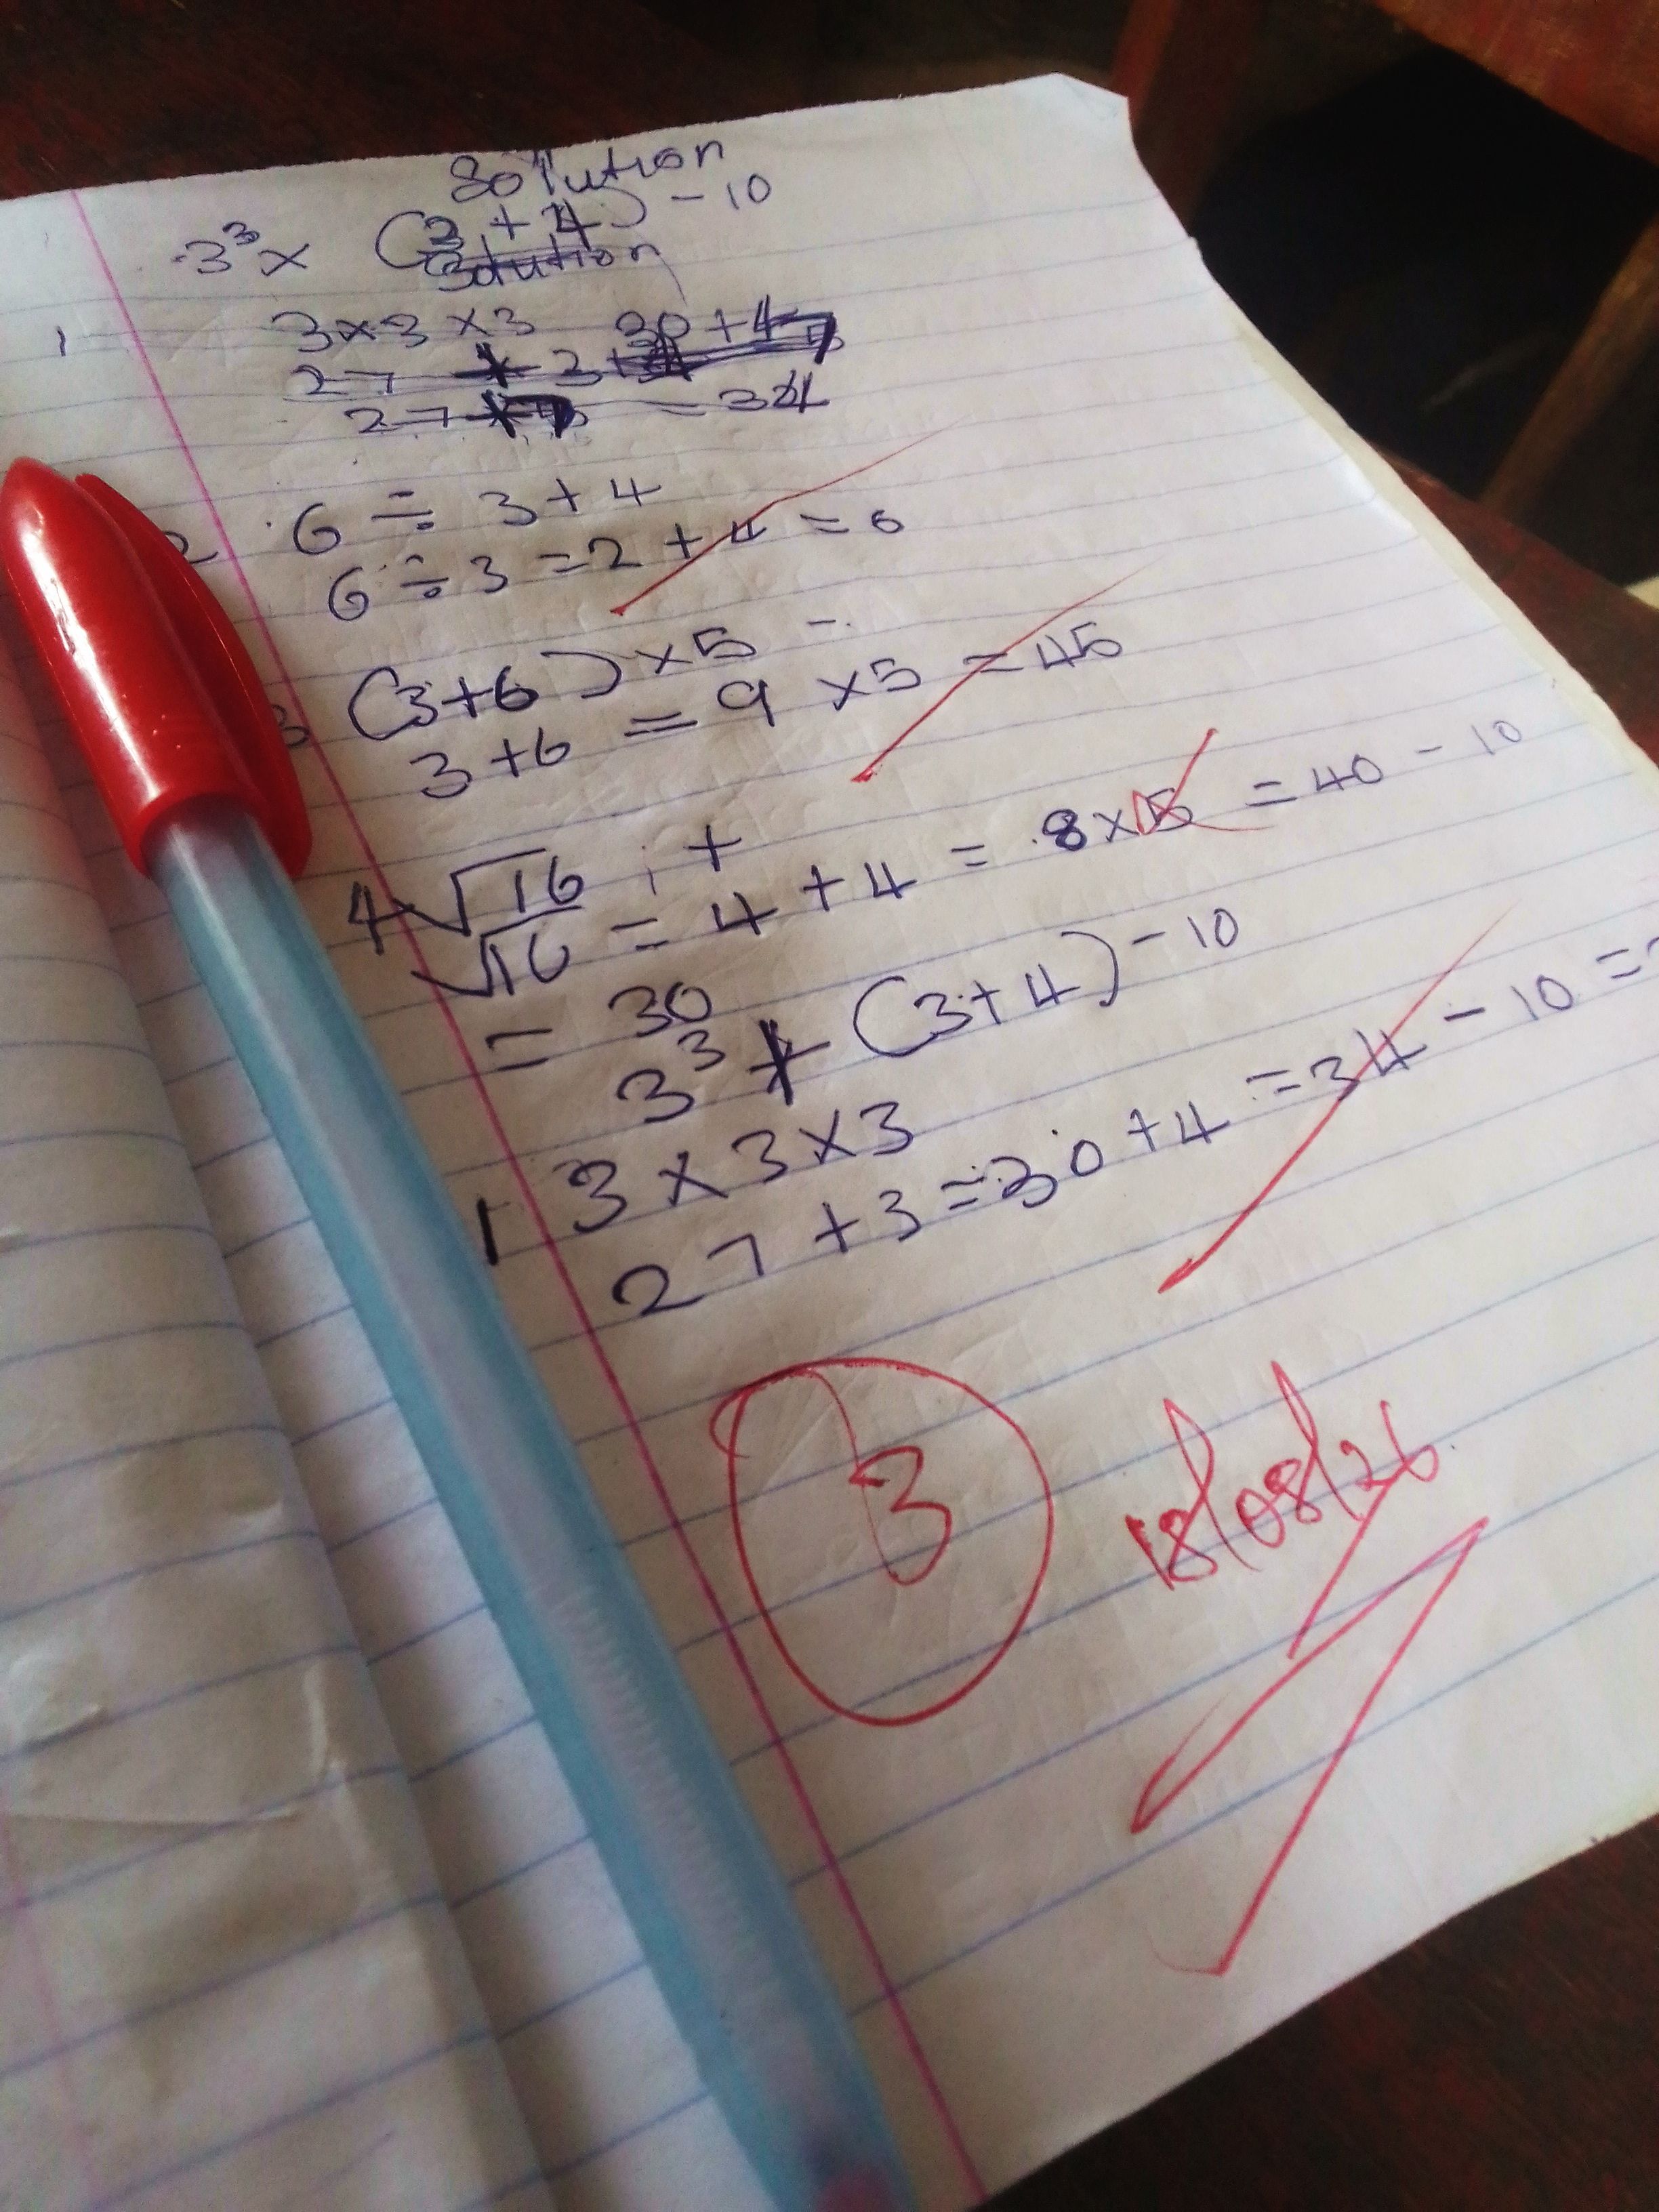 Solution
3³ × (3 + 4) - 10
Solution
1 3×3×3 30 + 4
27 3
27 = 34
2 6 ÷ 3 + 4
6 ÷ 3 = 2 + 4 = 6
3 (3+6) × 5 -
3 + 6 = 9 × 5 = 45
4 √16 +
√16 = 4 + 4 = 8 × 5 = 40 - 10
= 30
3³ + (3+4) - 10
1 3 × 3 × 3
27 + 3 = 30 + 4 = 34 - 10 =
3
18/08/26